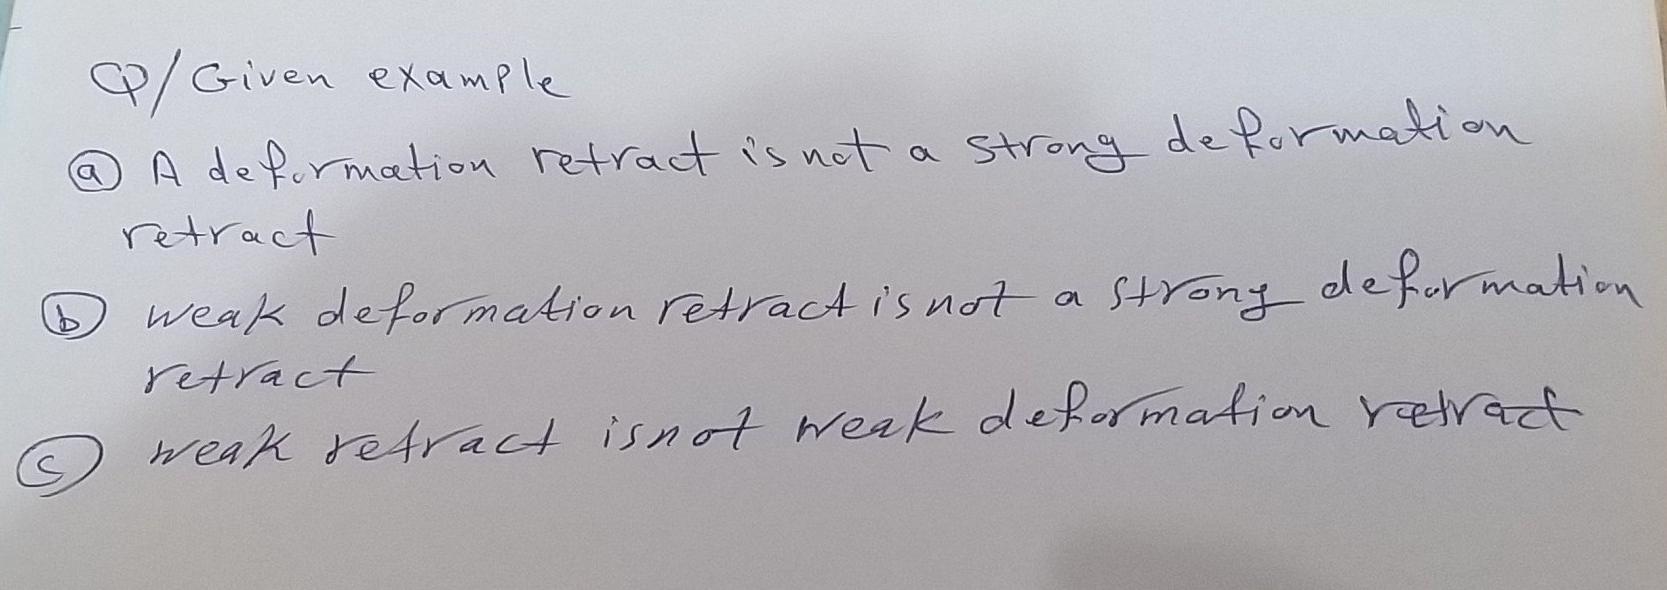 Q/ Given example
ⓐ A deformation retract is not a strong deformation
retract
ⓑ weak deformation retract is not a strong deformation
retract
ⓒ weak retract is not weak deformation retract